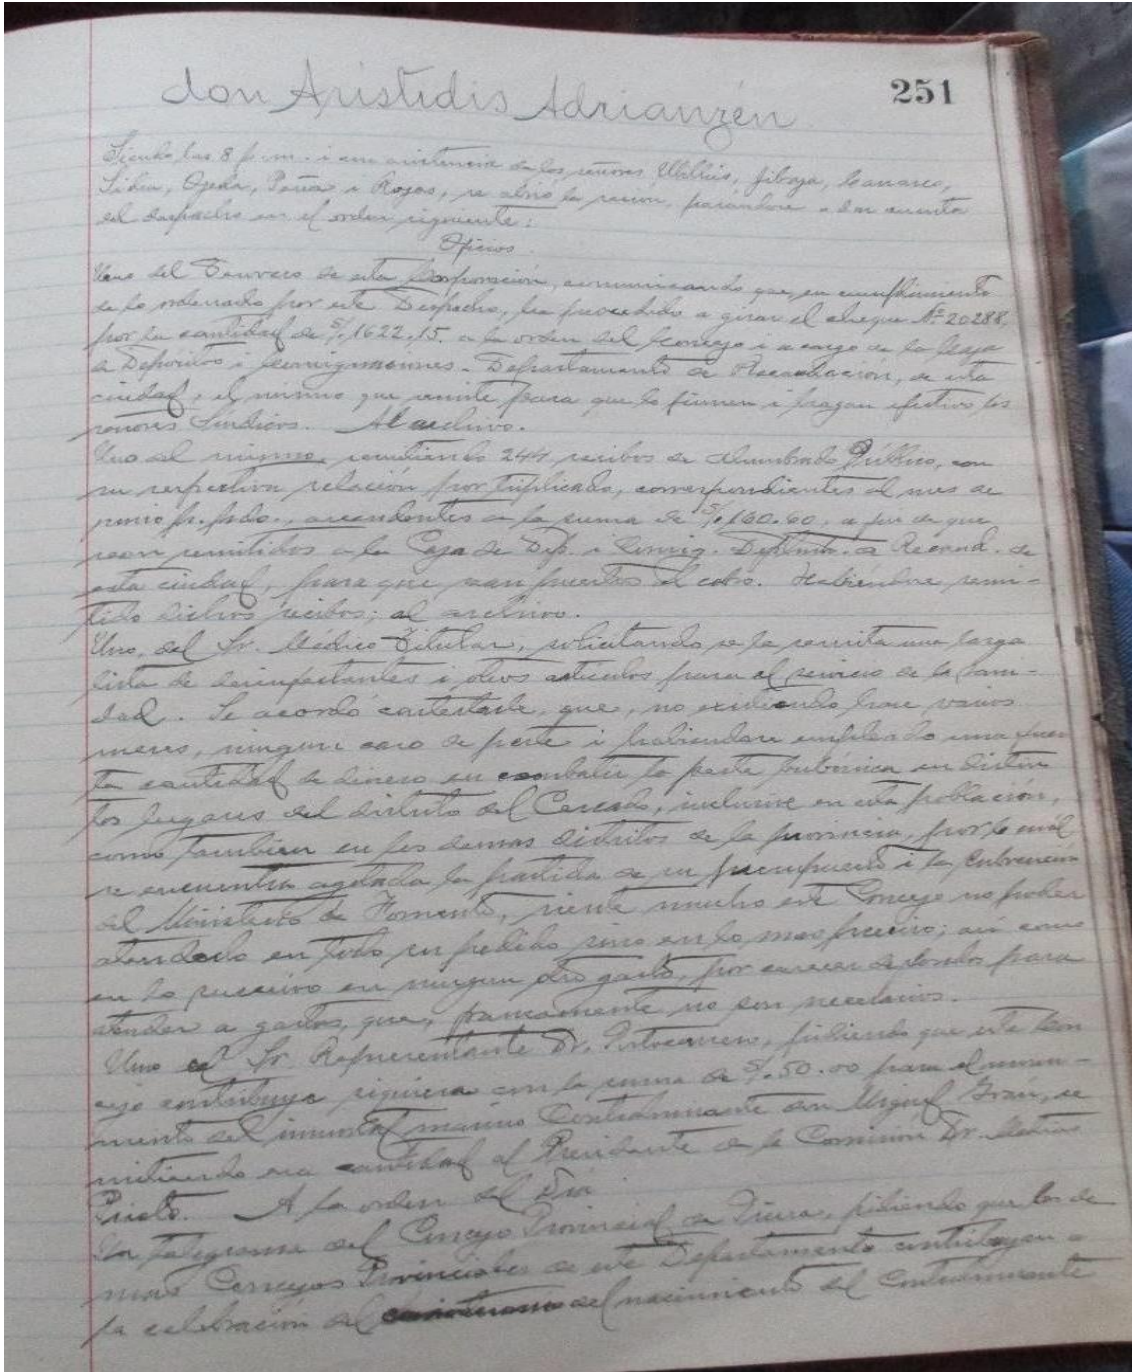 251
don Aristedis Adrianzén
Siendo las 8 p.m. i con asistencia de los señores Jiboja, Carrasco,
Silva, Ojeda, Peña i Rojas, se abrió la sesión, pasandose a dar cuenta
del despacho en el orden siguiente:
Oficios
Uno del Tesorero de esta Corporación, comunicando que, en cumplimiento
de lo ordenado por este Despacho, ha procedido a girar el cheque Nº 20288,
por la cantidad de S/. 1622.15. a la orden del Concejo i a cargo de la Caja
de Depósitos i Consignaciones - Departamento de Recaudacion, de esta
ciudad, el mismo que remite para que lo firmen i hagan efectivo los
señores Síndicos. Al archivo.
Uno del mismo, remitiendo 244 recibos de Alumbrado Público, con
su respectiva relación por triplicado, correspondientes al mes de
junio p. pdo., ascendentes a la suma de S/. 160.60, a fin de que
sean remitidos a la Caja de Dep. i Consig. Deptmto. de Recaud. de
esta ciudad, para que sean puestos al cobro. Habiéndose remi-
tido dichos recibos; al archivo.
Uno, del Sr. Médico Titular, solicitando se le remita una larga
lista de desinfectantes i otros artículos para el servicio de la sani-
dad. Se acordó contestarle, que, no existiendo hace varios
meses, ningun caso de peste i habiendose empleado una fuer
te cantidad de dinero en combatir la peste bubónica en distin
tos lugares del distrito del Cercado, inclusive en esta población,
como tambien en los demas distritos de la provincia, por lo cual
se encuentra agotada la partida de su presupuesto i la subvención
del Ministerio de Fomento, siente mucho este Concejo no poder
atenderlo en todo su pedido sino en lo mas preciso; asi como
en lo sucesivo en ningun otro gasto, por carecer de fondos para
atender a gastos, que, francamente no son necesarios.
Uno del Sr. Representante Dr. Portocarrero, pidiendo que este Con
cejo contribuya siquiera con la suma de S/. 50.00 para el monu-
mento del inmortal marino Contralmirante don Miguel Grau, re
mitiendo esa cantidad al Presidente de la Comision Dr. Matías
Prieto. A la orden del Dia
Un telegrama del Concejo Provincial de Piura, pidiendo que los de
mas Concejos Provinciales de este Departamento contribuyan a
la celebración del del nacimiento del Contralmirante